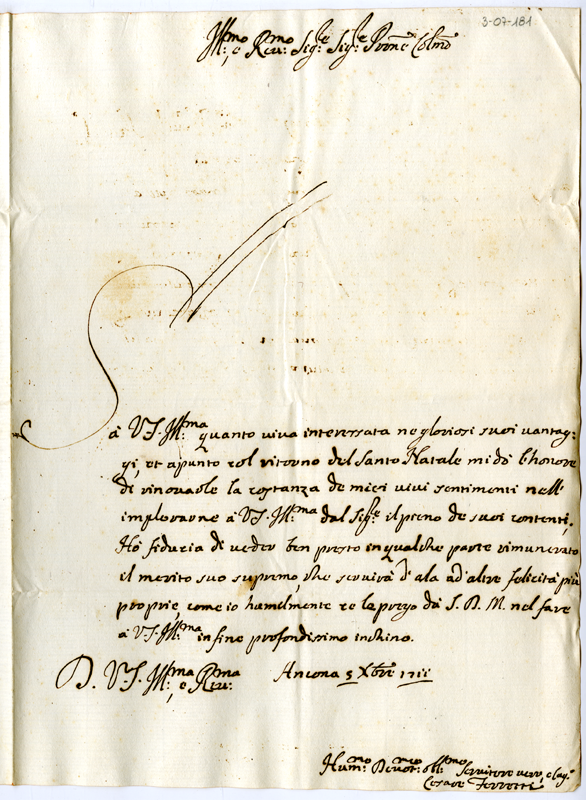 3-07-181
Ill:mo, e Rev:mo Sig:re Sig:re Pron̄e Colmo
Sà V.S. Ill:ma quanto viva interessata ne gloriosi suoi vantag:
gi, et apunto col ritorno del Santo Natale mi dò l'honore
di rinovarle la costanza de miei vivi sentimenti nell'
implorarne à V.S. Ill:ma dal Sig:re il pieno de suoi contenti.
Hò fiducia di veder ben presto in qualche parte rimunerato
il merito suo supremo, che servirà d'ala ad'altre felicità più
proprie, come io humilmente ce le prego da S. D. M. nel fare
à V.S. Ill:ma in fine profondissimo inchino.
D. V.S. Ill:ma, e Rev:ma Ancona 5 Xbre 1711
Hum:mo Devot:mo obl:mo Servitore vero,
Cesare Ferretti